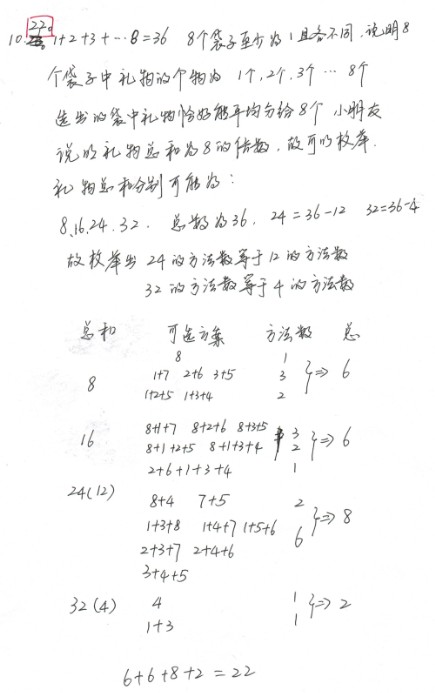 22。
10. 1+2+3+…8=36 8个袋子至少为1且各不同,说明8
个袋子中礼物的个物为 1个,2个,3个…8个
选出的袋中礼物恰好能平均分给8个 小朋友
说明礼物总和为8的倍数,故可以枚举.
礼物总和分别可能为:
8,16,24,32. 总数为36, 24=36-12 32=36-4
故枚举出 24的方法数等于12的方法数
32的方法数等于4的方法数
总和 可选方案 方法数 总
8 1
8 1+7 2+6 3+5 3 }⇒ 6
1+2+5 1+3+4 2
16 8+1+7 8+2+6 8+3+5 3
8+1+2+5 8+1+3+4 2 }⇒ 6
2+6+1+3+4 1
24(12) 8+4 7+5 2
1+3+8 1+4+7 1+5+6 6 }⇒ 8
2+3+7 2+4+6
3+4+5
32(4) 4 1
1+3 1 }⇒ 2
6+6+8+2=22